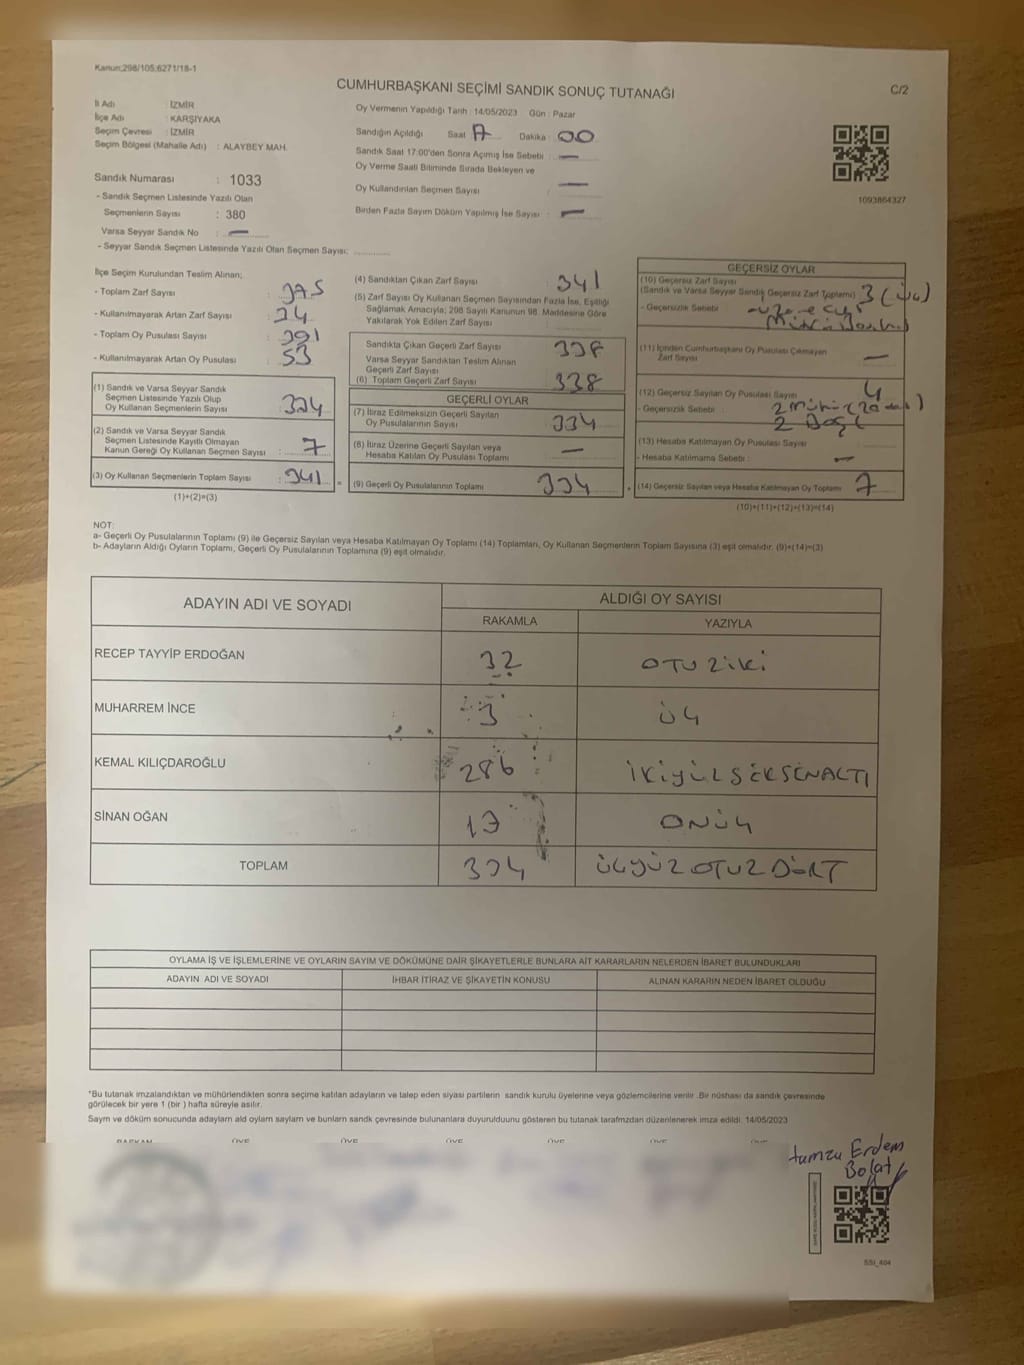 Kanun;298/105;6271/18-1
CUMHURBAŞKANI SEÇİMİ SANDIK SONUÇ TUTANAĞI
C/2
İl Adı : İZMİR
İlçe Adı : KARŞIYAKA
Seçim Çevresi : İZMİR
Seçim Bölgesi (Mahalle Adı) : ALAYBEY MAH.
Sandık Numarası : 1033
- Sandık Seçmen Listesinde Yazılı Olan
Seçmenlerin Sayısı : 380
Varsa Seyyar Sandık No : —
- Seyyar Sandık Seçmen Listesinde Yazılı Olan Seçmen Sayısı:
Oy Vermenin Yapıldığı Tarih : 14/05/2023 Gün : Pazar
Sandığın Açıldığı Saat Dakika : 00
Sandık Saat 17:00'den Sonra Açımış İse Sebebi : —
Oy Verme Saati Bitiminde Sırada Bekleyen ve
Oy Kullandırılan Seçmen Sayısı : —
Birden Fazla Sayım Döküm Yapılmış İse Sayısı : —
1093864327
İlçe Seçim Kurulundan Teslim Alınan;
- Toplam Zarf Sayısı :
- Kullanılmayarak Artan Zarf Sayısı :
- Toplam Oy Pusulası Sayısı :
- Kullanılmayarak Artan Oy Pusulası : 53
(1) Sandık ve Varsa Seyyar Sandık
Seçmen Listesinde Yazılı Olup
Oy Kullanan Seçmenlerin Sayısı : 334
(2) Sandık ve Varsa Seyyar Sandık
Seçmen Listesinde Kayıtlı Olmayan
Kanun Gereği Oy Kullanan Seçmen Sayısı : 7
(3) Oy Kullanan Seçmenlerin Toplam Sayısı : 341
(1)+(2)=(3)
(4) Sandıktan Çıkan Zarf Sayısı : 341
(5) Zarf Sayısı Oy Kullanan Seçmen Sayısından Fazla İse, Eşitliği
Sağlamak Amacıyla; 298 Sayılı Kanunun 98. Maddesine Göre
Yakılarak Yok Edilen Zarf Sayısı :
Sandıkta Çıkan Geçerli Zarf Sayısı : 338
Varsa Seyyar Sandıktan Teslim Alınan
Geçerli Zarf Sayısı
(6) Toplam Geçerli Zarf Sayısı : 338
GEÇERLİ OYLAR
(7) İtiraz Edilmeksizin Geçerli Sayılan
Oy Pusulalarının Sayısı : 334
(8) İtiraz Üzerine Geçerli Sayılan veya
Hesaba Katılan Oy Pusulası Toplamı : —
(9) Geçerli Oy Pusulalarının Toplamı : 334
GEÇERSİZ OYLAR
(10) Geçersiz Zarf Sayısı
(Sandık ve Varsa Seyyar Sandık Geçersiz Zarf Toplamı) : 3 (üç)
- Geçersizlik Sebebi :
(11) İçinden Cumhurbaşkanı Oy Pusulası Çıkmayan
Zarf Sayısı : —
(12) Geçersiz Sayılan Oy Pusulası Sayısı : 4
- Geçersizlik Sebebi : 2 mühür
2 Boş
(13) Hesaba Katılmayan Oy Pusulası Sayısı :
- Hesaba Katılmama Sebebi : —
(14) Geçersiz Sayılan veya Hesaba Katılmayan Oy Toplamı : 7
(10)+(11)+(12)+(13)=(14)
NOT:
a- Geçerli Oy Pusulalarının Toplamı (9) ile Geçersiz Sayılan veya Hesaba Katılmayan Oy Toplamı (14) Toplamları, Oy Kullanan Seçmenlerin Toplam Sayısına (3) eşit olmalıdır. (9)+(14)=(3)
b- Adayların Aldığı Oyların Toplamı, Geçerli Oy Pusulalarının Toplamına (9) eşit olmalıdır.
ADAYIN ADI VE SOYADI ALDIĞI OY SAYISI
RAKAMLA YAZIYLA
RECEP TAYYİP ERDOĞAN 32 OTUZİKİ
MUHARREM İNCE 3 ÜÇ
KEMAL KILIÇDAROĞLU 286 İKİYÜZSEKSENALTI
SİNAN OĞAN 13 ONÜÇ
TOPLAM 334 ÜÇYÜZOTUZDÖRT
OYLAMA İŞ VE İŞLEMLERİNE VE OYLARIN SAYIM VE DÖKÜMÜNE DAİR ŞİKAYETLERLE BUNLARA AİT KARARLARIN NELERDEN İBARET BULUNDUKLARI
ADAYIN ADI VE SOYADI İHBAR İTİRAZ VE ŞİKAYETİN KONUSU ALINAN KARARIN NEDEN İBARET OLDUĞU
*Bu tutanak imzalandıktan ve mühürlendikten sonra seçime katılan adayların ve talep eden siyasi partilerin sandık kurulu üyelerine veya gözlemcilerine verilir .Bir nüshası da sandık çevresinde
görülecek bir yere 1 (bir ) hafta süreyle asılır.
Sayım ve döküm sonucunda adayların ald oyların sayların ve bunların sandk çevresinde bulunanlara duyurulduunu gösteren bu tutanak tarafmzdan düzenlenerek imza edildi. 14/05/2023
BAŞKAN ÜYE ÜYE ÜYE ÜYE ÜYE ÜYE
Erdem
Bolat
SSI_404